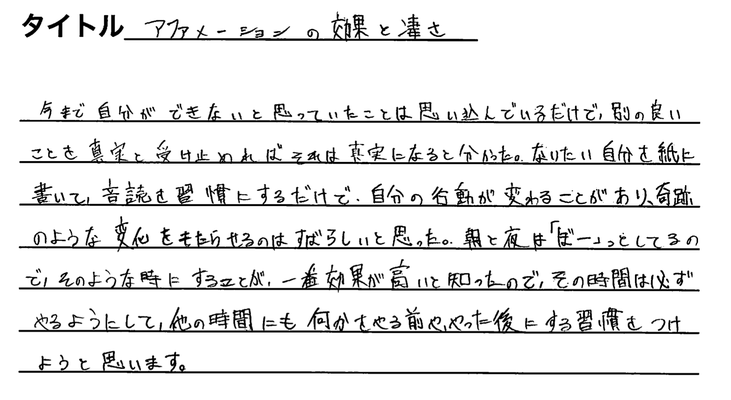 タイトル アファメーションの効果と凄さ
今まで自分ができないと思っていたことは思い込んでいるだけで、別の良い
ことを真実と受け止めればそれは真実になると分かった。なりたい自分を紙に
書いて、音読を習慣にするだけで、自分の行動が変わることがあり、奇跡
のような変化をもたらせるのはすばらしいと思った。朝と夜は「ぼーっ」としてるの
で、そのような時にすることが、一番効果が高いと知ったので、その時間は必ず
やるようにして、他の時間にも何かをやる前や、やった後にする習慣をつけ
ようと思います。